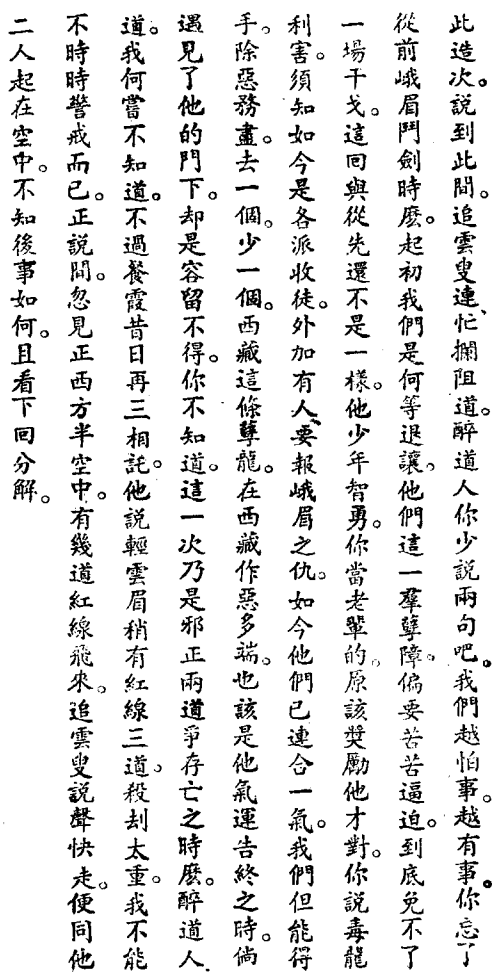 此造次。說到此間。追雲叟連忙攔阻道。醉道人你少說兩句吧。我們越怕事。越有事。你忘了
從前峨眉鬥劍時麽。起初我們是何等退讓。他們這一羣孽障。偏要苦苦逼迫。到底免不了
一場干戈。這回與從先還不是一樣。他少年智勇。你當老輩的。原該獎勵他才對。你說毒龍
利害。須知如今是各派收徒。外加有人、要報峨眉之仇。如今他們已連合一氣。我們但能得
手。除惡務盡。去一個。少一個。西藏這條孽龍。在西藏作惡多端。也該是他氣運告終之時。倘
遇見了他的門下。却是容留不得。你不知道。這一次乃是邪正兩道爭存亡之時麽。醉道人
道。我何嘗不知道。不過餐霞昔日再三相託。他說輕雲眉稍有紅線三道。殺刦太重。我不能
不時時警戒而已。正說間。忽見正西方半空中。有幾道紅線飛來。追雲叟說聲快走。便同他
二人起在空中。不知後事如何。且看下回分解。